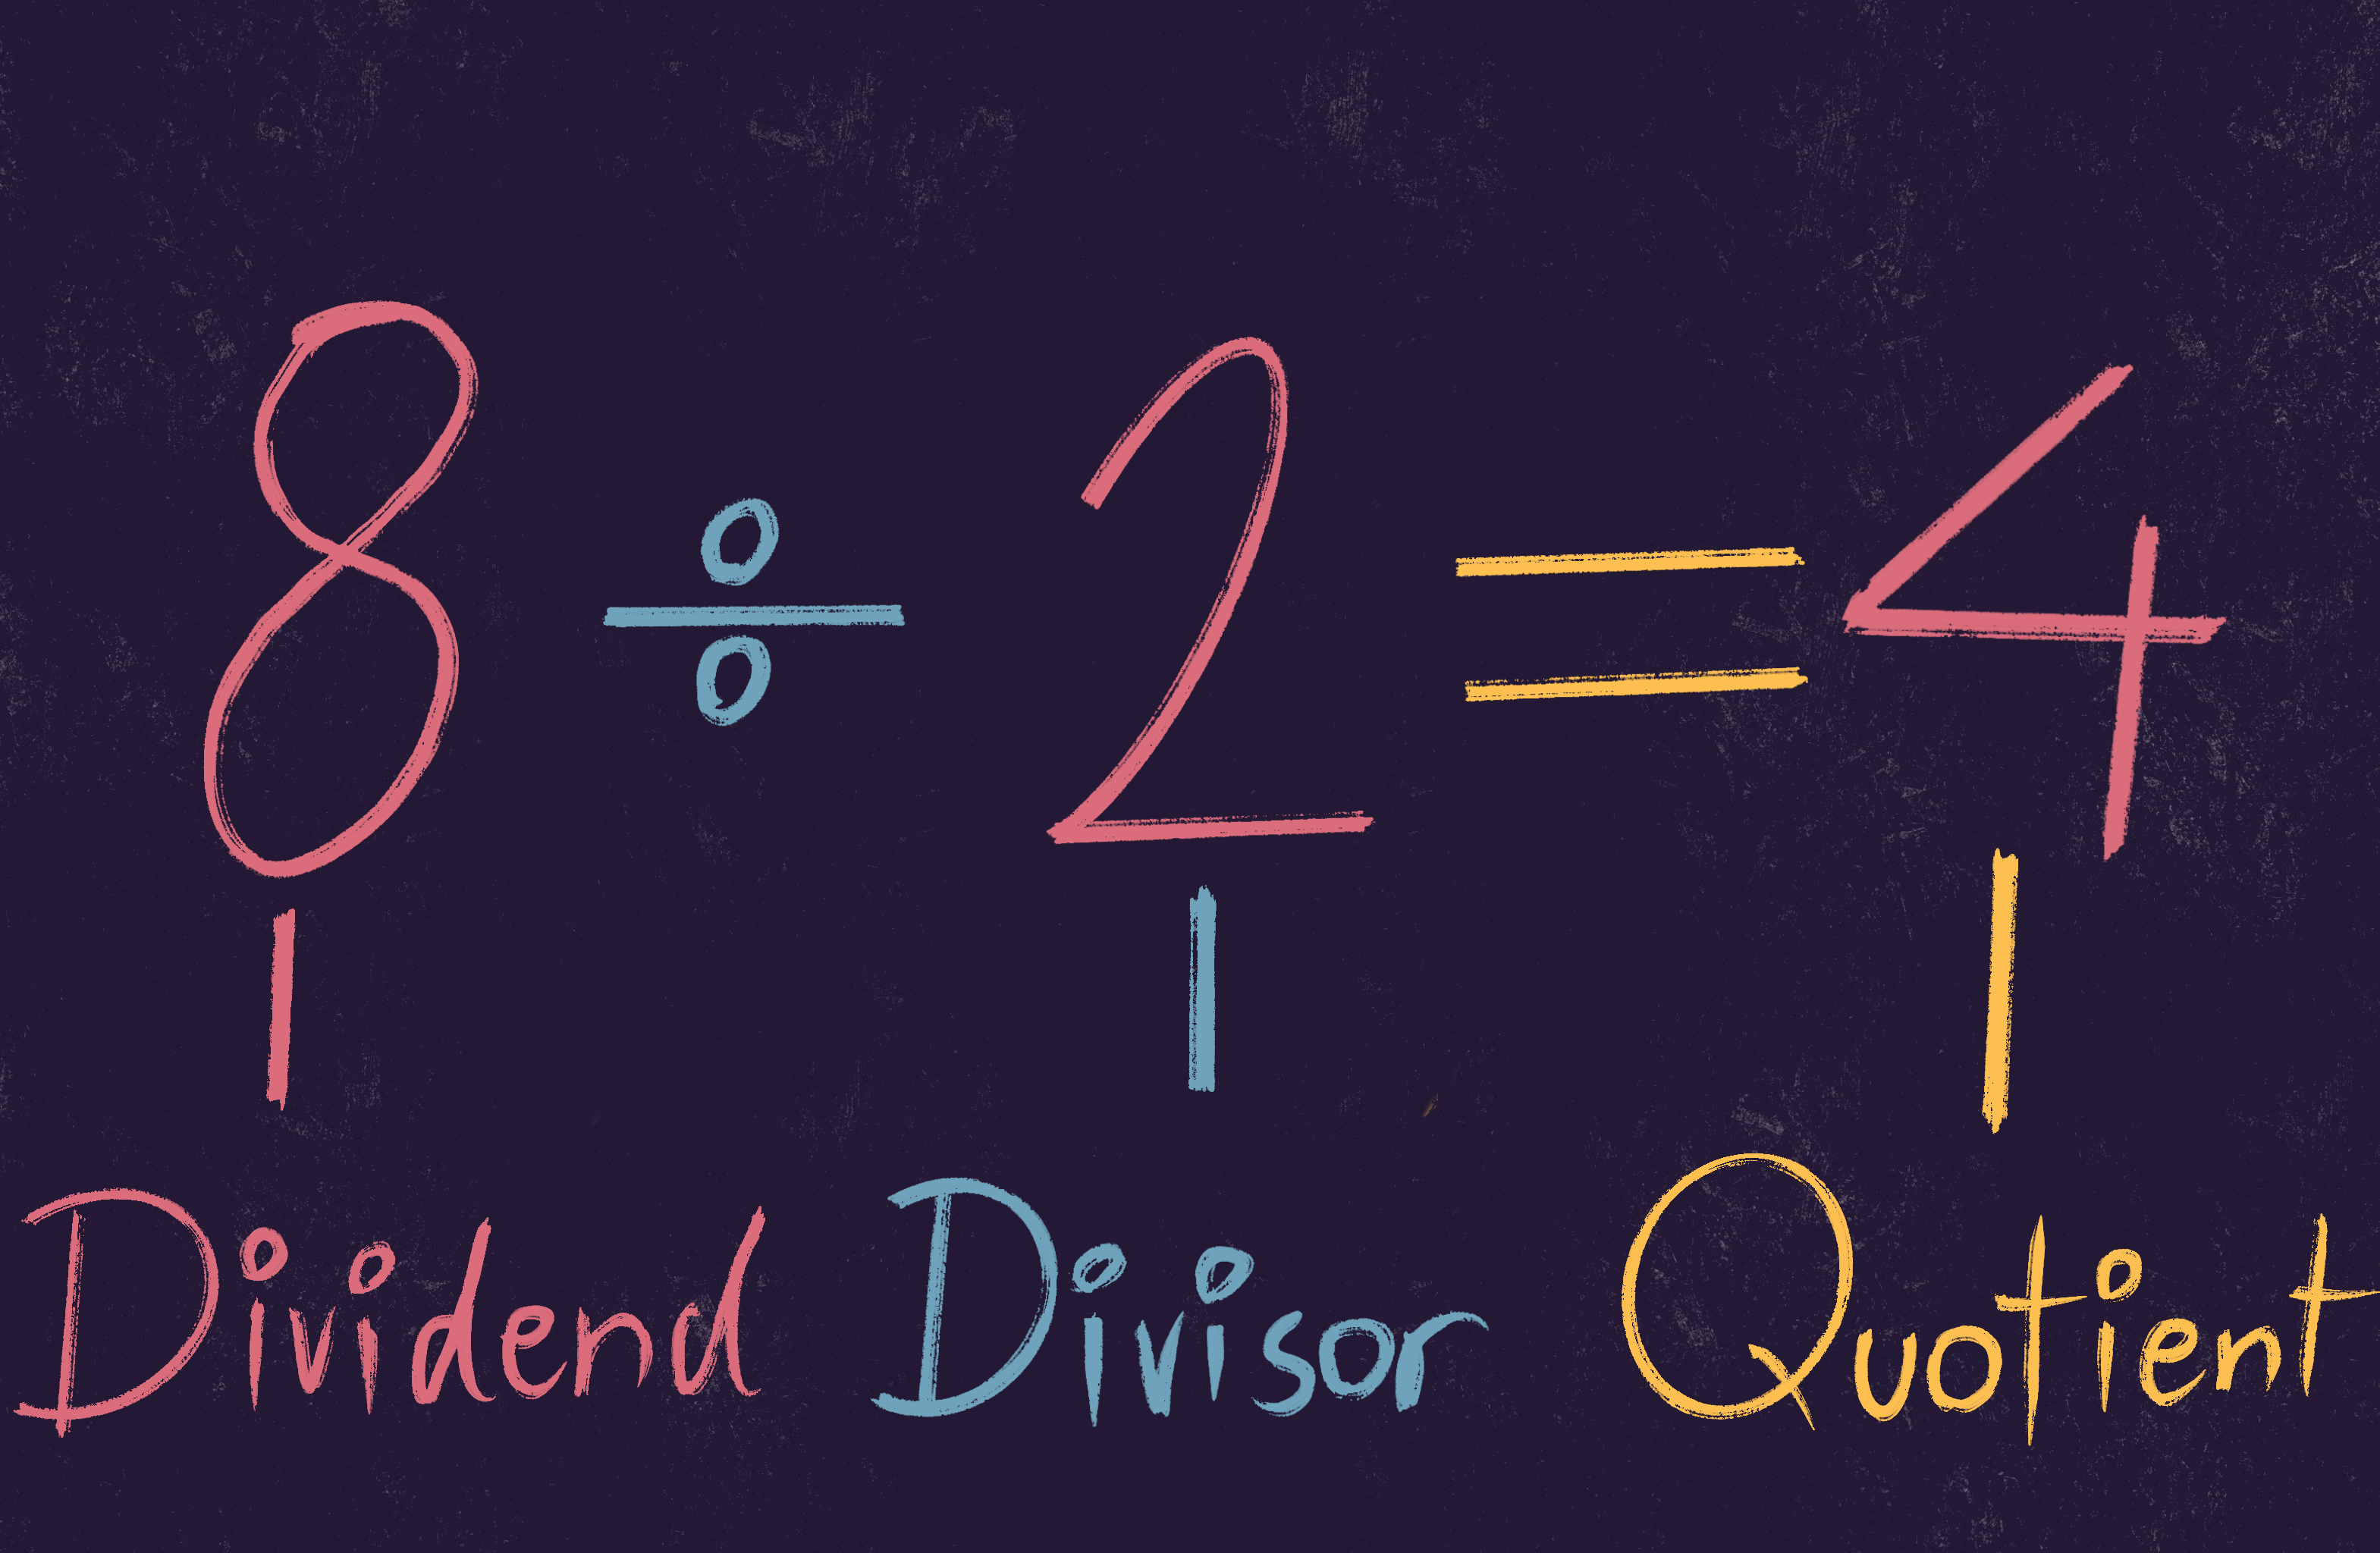 8 ÷ 2 = 4
Dividend Divisor Quotient